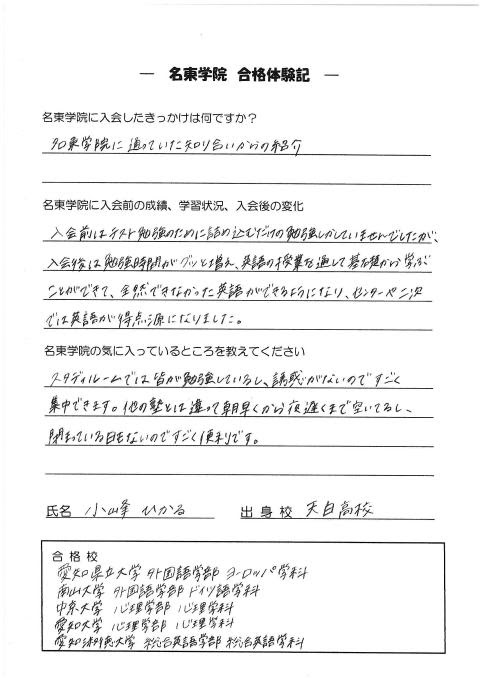 ― 名東学院 合格体験記 ―
名東学院に入会したきっかけは何ですか?
名東学院に通っていた知り合いからの紹介
名東学院に入会前の成績、学習状況、入会後の変化
入会前はテスト勉強のために詰め込むだけの勉強しかしていませんでしたが、
入会後は勉強時間がグッと増え、英語の授業を通して基礎から学ぶ
ことができて、全然できなかった英語ができるようになり、センターや二次
では英語が得点源になりました。
名東学院の気に入っているところを教えてください
スタディルームでは皆が勉強しているし、誘惑がないのですごく
集中できます。他の塾とは違って朝早くから夜遅くまで空いてるし、
閉まっている日もないのですごく便利です。
氏名 小山峯 ひかる 出身校 天白高校
合格校
愛知県立大学 外国語学部 ヨーロッパ学科
南山大学 外国語学部 ドイツ語学科
中京大学 心理学部 心理学科
愛知大学 心理学部 心理学科
愛知淑徳大学 総合英語学部 総合英語学科